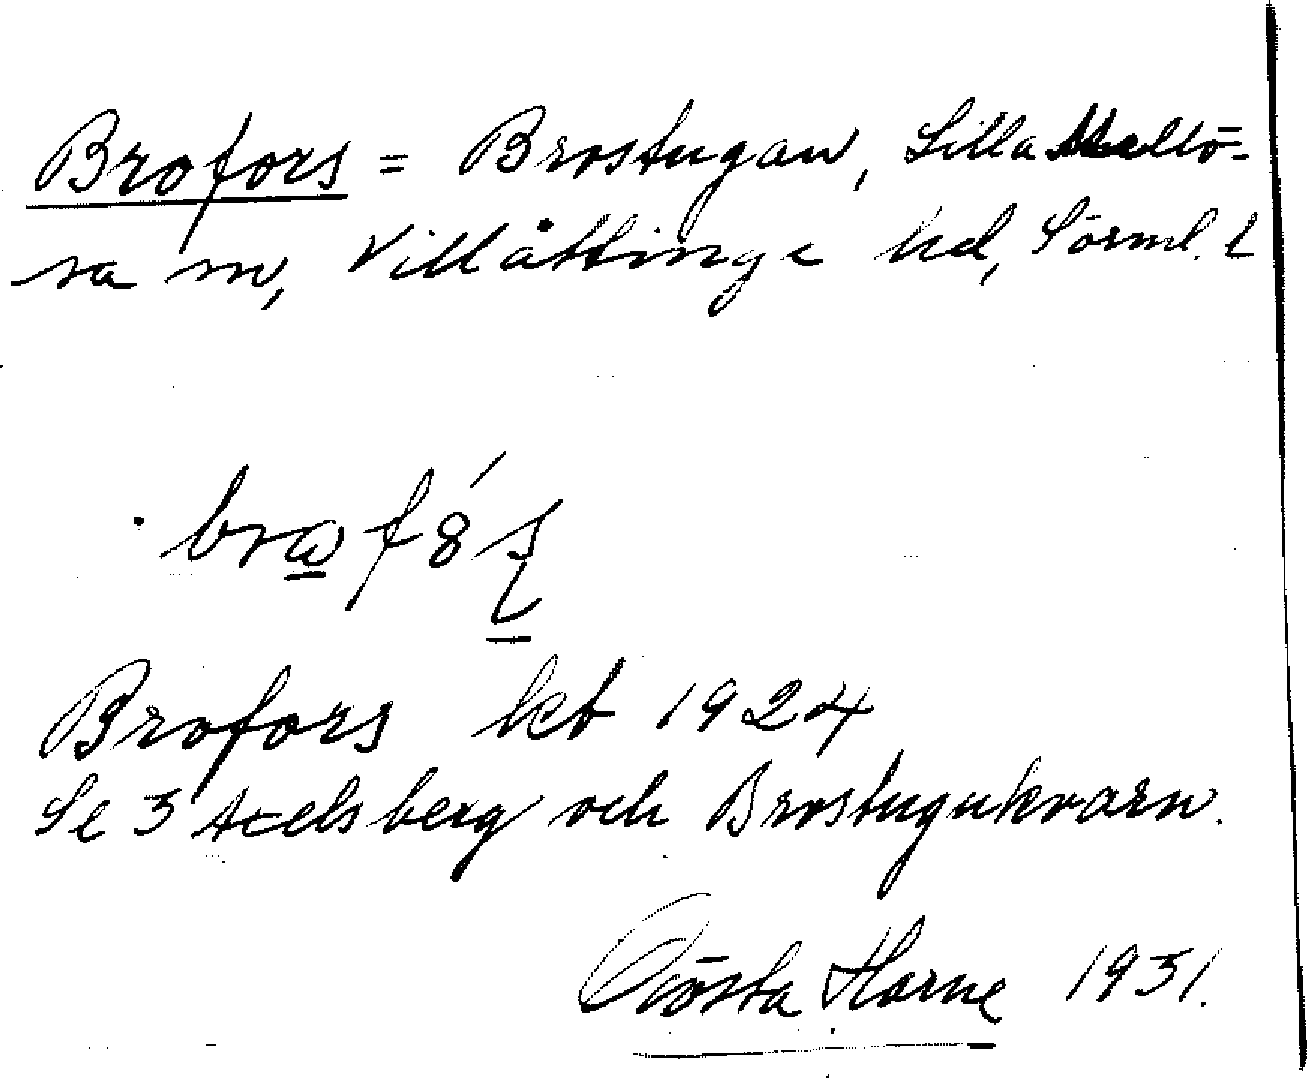 Brofors = Brostugan, Lilla Mellö-
sa sn, Villåttinge hd, Sörml. l
Brofors kb 1924
Se 3 Axelsberg och Brostugukvarn.
Gösta Horne 1931.